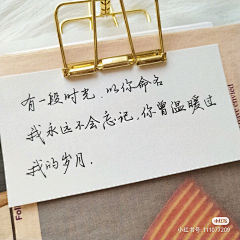 有一段时光，以你命名
我永远不会忘记，你曾温暖过
我的岁月.
小红书
小红书号 111077209